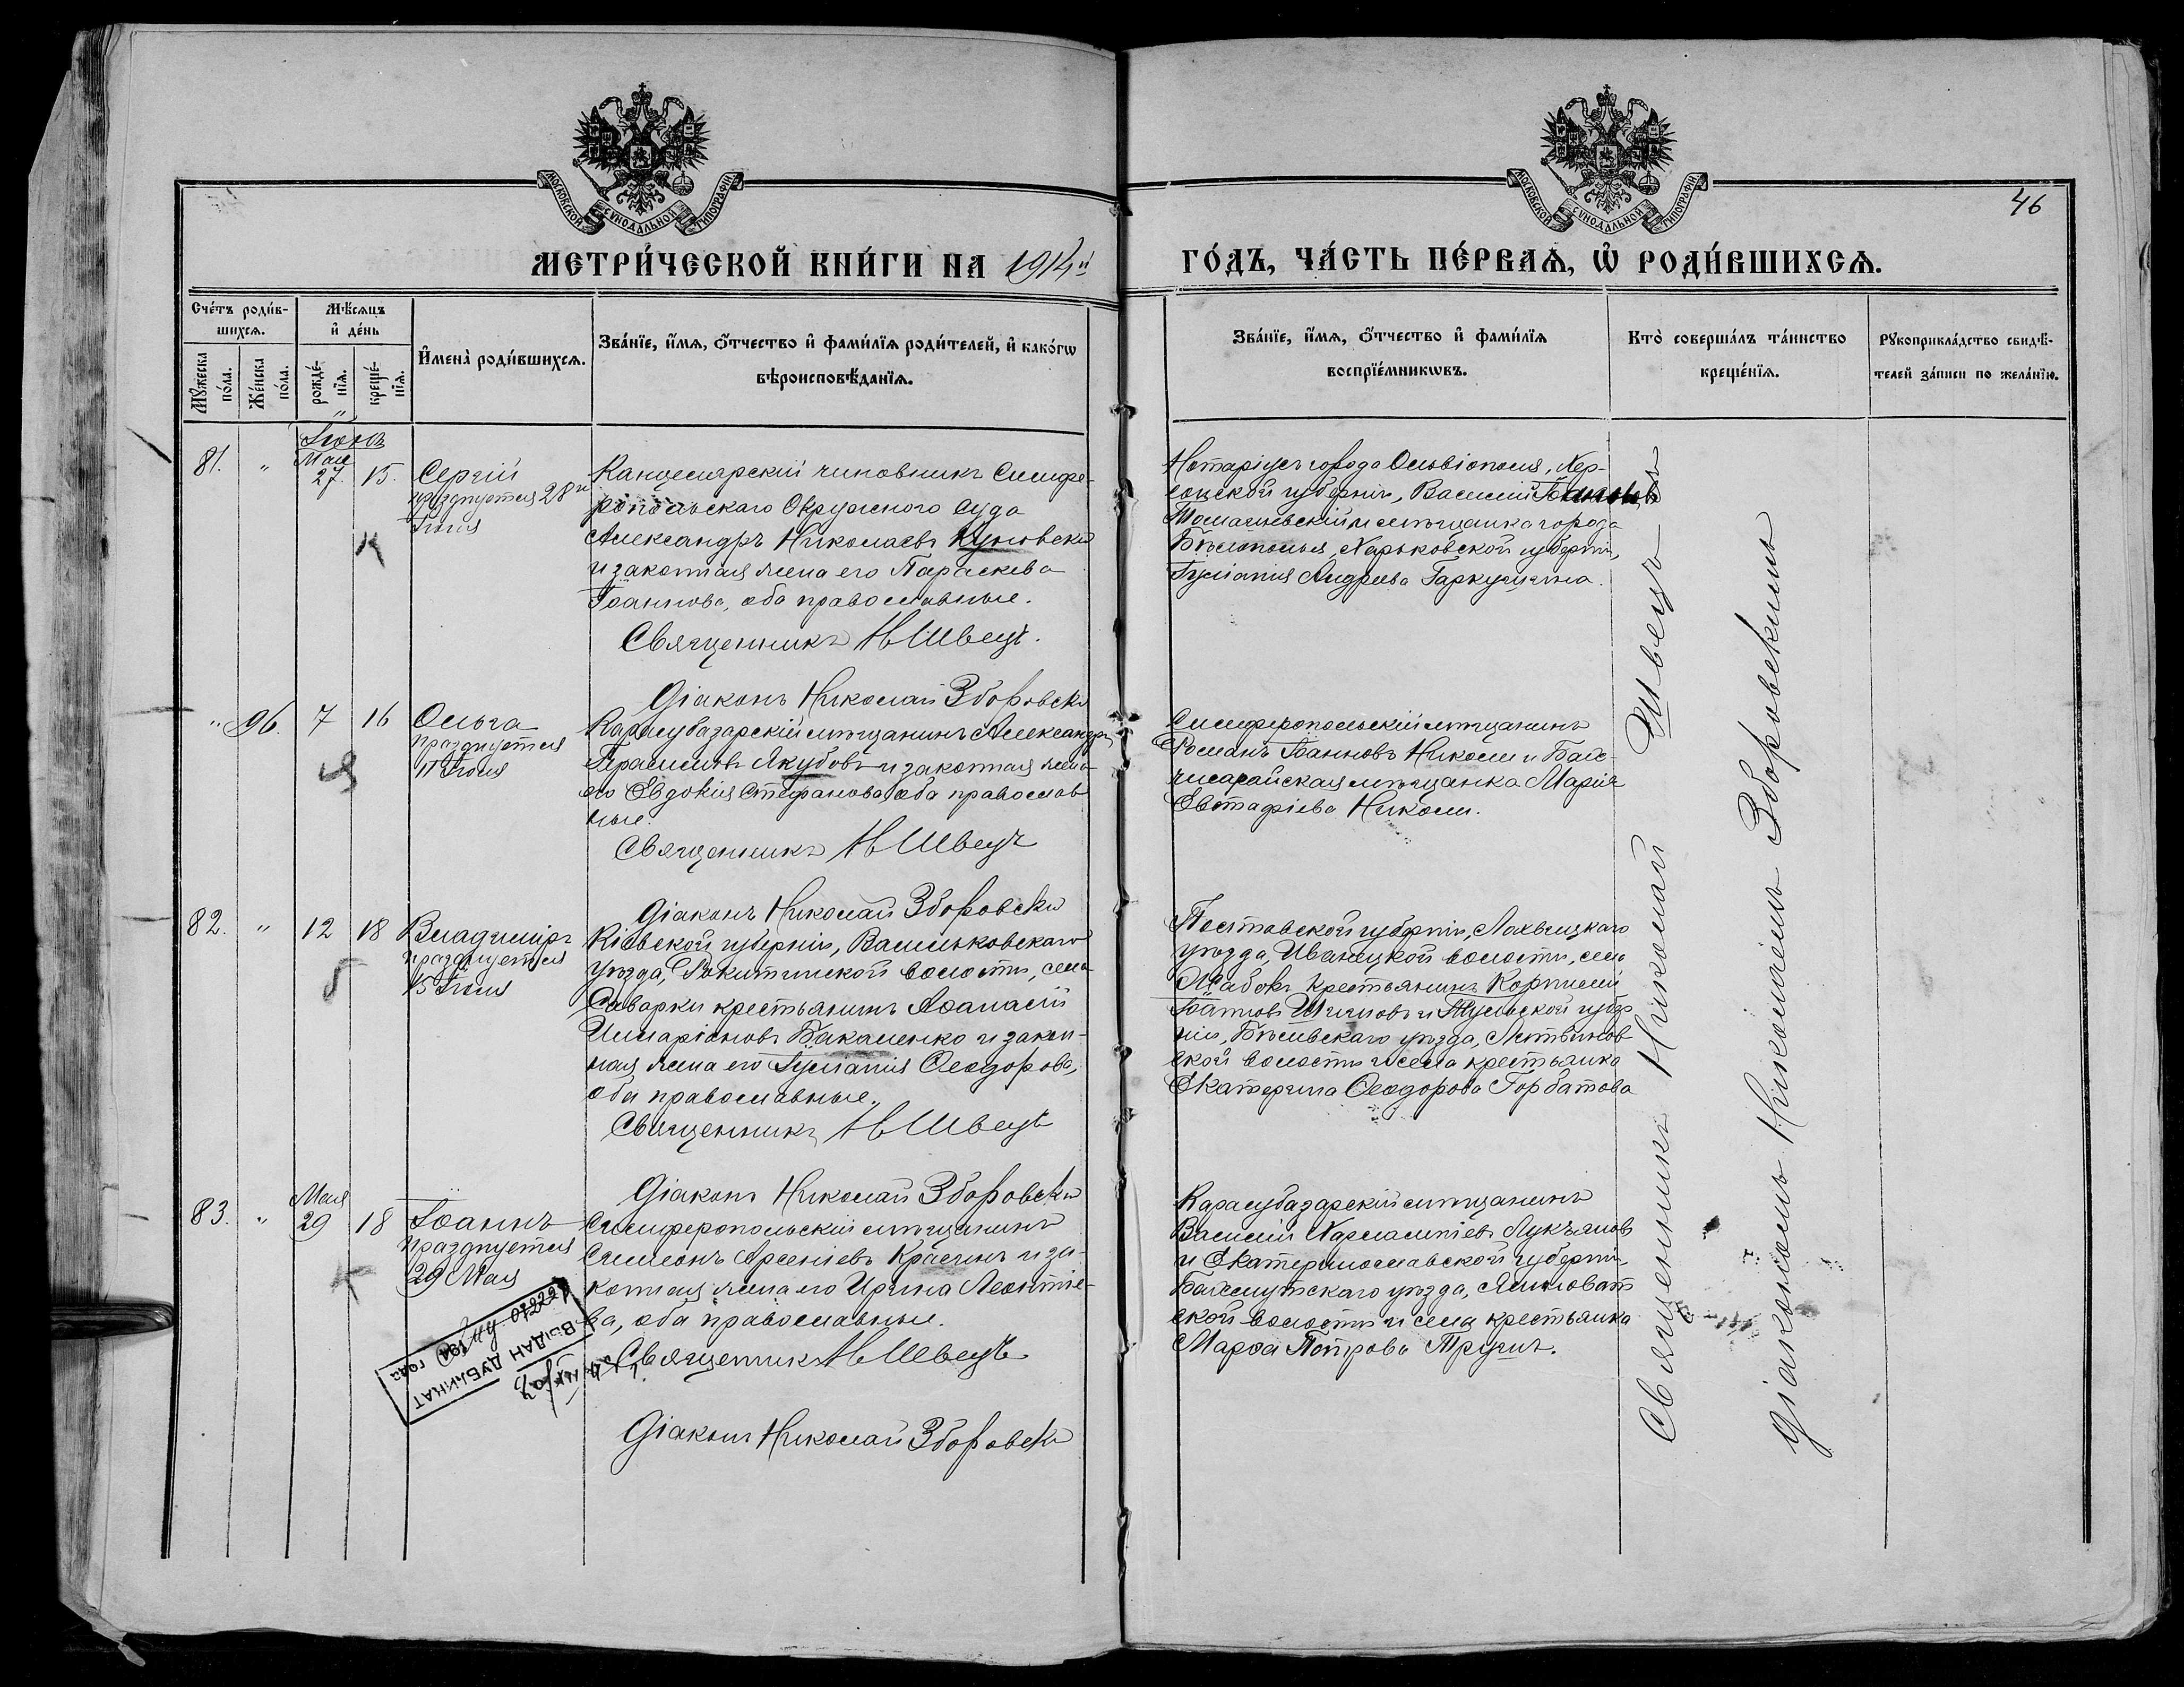 МОСКОВСКОЙ СѴНОДАЛЬНОЙ ТИПОГРАФІИ
МОСКОВСКОЙ СѴНОДАЛЬНОЙ ТИПОГРАФІИ
46
МЕТРИ́ЧЕСКОЙ КНИ́ГИ НА 1914й
ГО́ДЪ, ЧА́СТЬ ПЕ́РВАѦ, Ѡ҆ РОДИ́ВШИХСѦ.
Сче́тъ роди́в-
шихсѧ.
Мꙋ́жеска по́ла.
Же́нска по́ла.
Мѣ́сѧцъ
и҆ де́нь
рожде́-
нїѧ.
креще́-
нїѧ.
И҆мена̀ роди́вшихсѧ.
Зва́нїе, и҆́мѧ, ѻ҆́тчество и҆ фами́лїѧ роди́телей, и҆ како́гѡ
вѣроисповѣ́данїѧ.
Зва́нїе, и҆́мѧ, ѻ҆́тчество и҆ фами́лїѧ
воспрїе́мникѡвъ.
Кто̀ соверша́лъ та́инство
креще́нїѧ.
Рꙋкоприкла́дство свидѣ́-
телей за́писи по жела́нїю.
Іюнь
81. " Мая 27. 15. Сергій
празднуется 28го
Іюня
Канцелярскій чиновникъ Симфе-
ропольскаго Окружного Суда
Александръ Николаевъ Куновскій
и законная жена его Параскева
Іоаннова, оба православные.
Священникъ Н Швецъ.
Діаконъ Николай Зборовскій
Нотаріусъ города Ольвіополя, Хер-
сонской губерніи, Василій Іоанновъ
Томашевскій и мѣщанка города
Бѣлополья, Харьковской губерніи,
Іуліанія Андреева
К
" 96. 7 16 Ольга
празднуется
11 Іюля
Карасубазарскій мѣщанинъ Александръ
Якубовъ и законная жена
его Евдокія Стефанова, оба православ-
ные.
Священникъ Н Швецъ
Діаконъ Николай Зборовскій
Симферопольскій мѣщанинъ
Романъ Іоанновъ Николи и Бах-
чисарайская мѣщанка Марія
Евстафіева Николи.
Я
82. " 12 18 Владиміръ
празднуется
15 Іюля
Кіевской губерніи, Васильковскаго
уѣзда, Ракитянской волости, села
Саварки крестьянинъ Аѳанасій
Иларіоновъ Бакаленко и закон-
ная жена его Іуліанія Ѳеодорова,
оба православные.
Священникъ Н Швецъ
Діаконъ Николай Зборовскій
Полтавской губерніи, Лохвицкаго
уѣзда, Иваницкой волости, села
крестьянинъ Корнилій
Іоанновъ и Тульской губер
ніи, Бѣлевскаго уѣзда, Литвинов
ской волости и села крестьянка
Екатерина Ѳеодорова Горбатова
Б
83. " Мая 29 18 Іоаннъ
празднуется
29 Мая
Симферопольскій мѣщанинъ
Симеонъ Арсеніевъ Красинъ и за-
конная жена его Ирина Леонтіе-
ва, оба православные.
Священникъ Н Швецъ
Діаконъ Николай Зборовскій
Карасубазарскій мѣщанинъ
Василій Харлампіевъ Лукьяновъ
и Екатеринославской губерніи,
Бахмутскаго уѣзда, Ясиноват
ской волости и села крестьянка
Марѳа Петрова
К
ВЫДАН ДУБЛИКАТ
года
Священникъ Николай Швецъ
діакономъ Николаемъ Зборовскимъ